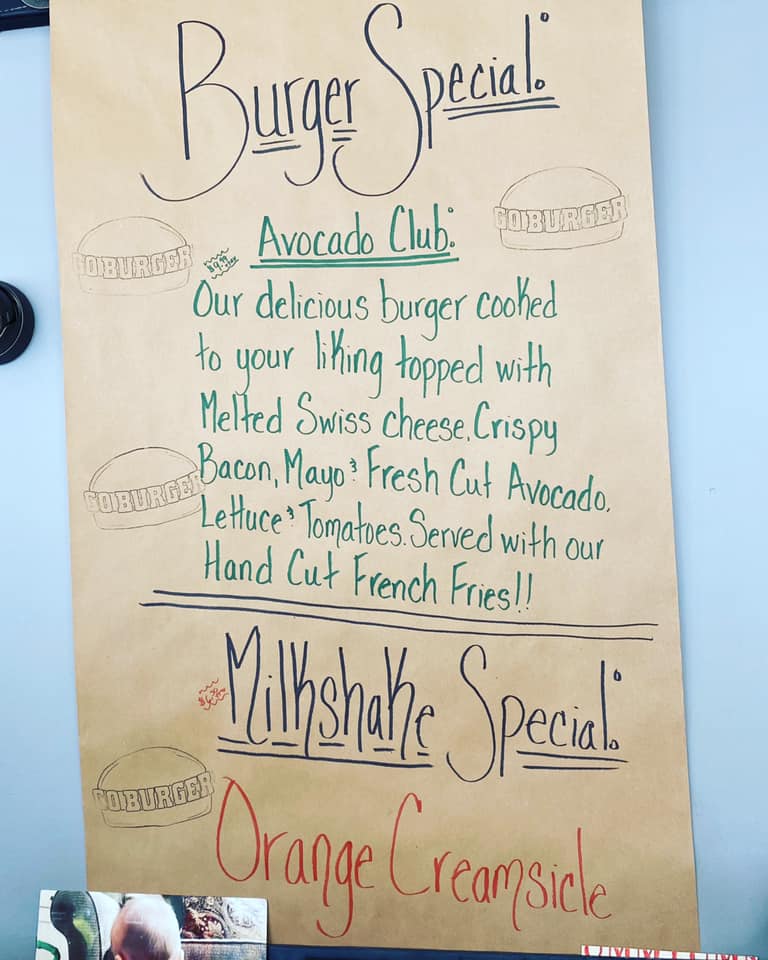 Burger Special:
GOBURGER
GOBURGER
Avocado Club:
$9.99
Our delicious burger cooked
to your liking topped with
Melted Swiss cheese, Crispy
Bacon, Mayo & Fresh Cut Avocado,
GOBURGER
Lettuce & Tomatoes. Served with our
Hand Cut French Fries!!
Milkshake Special:
GOBURGER
Orange Creamsicle